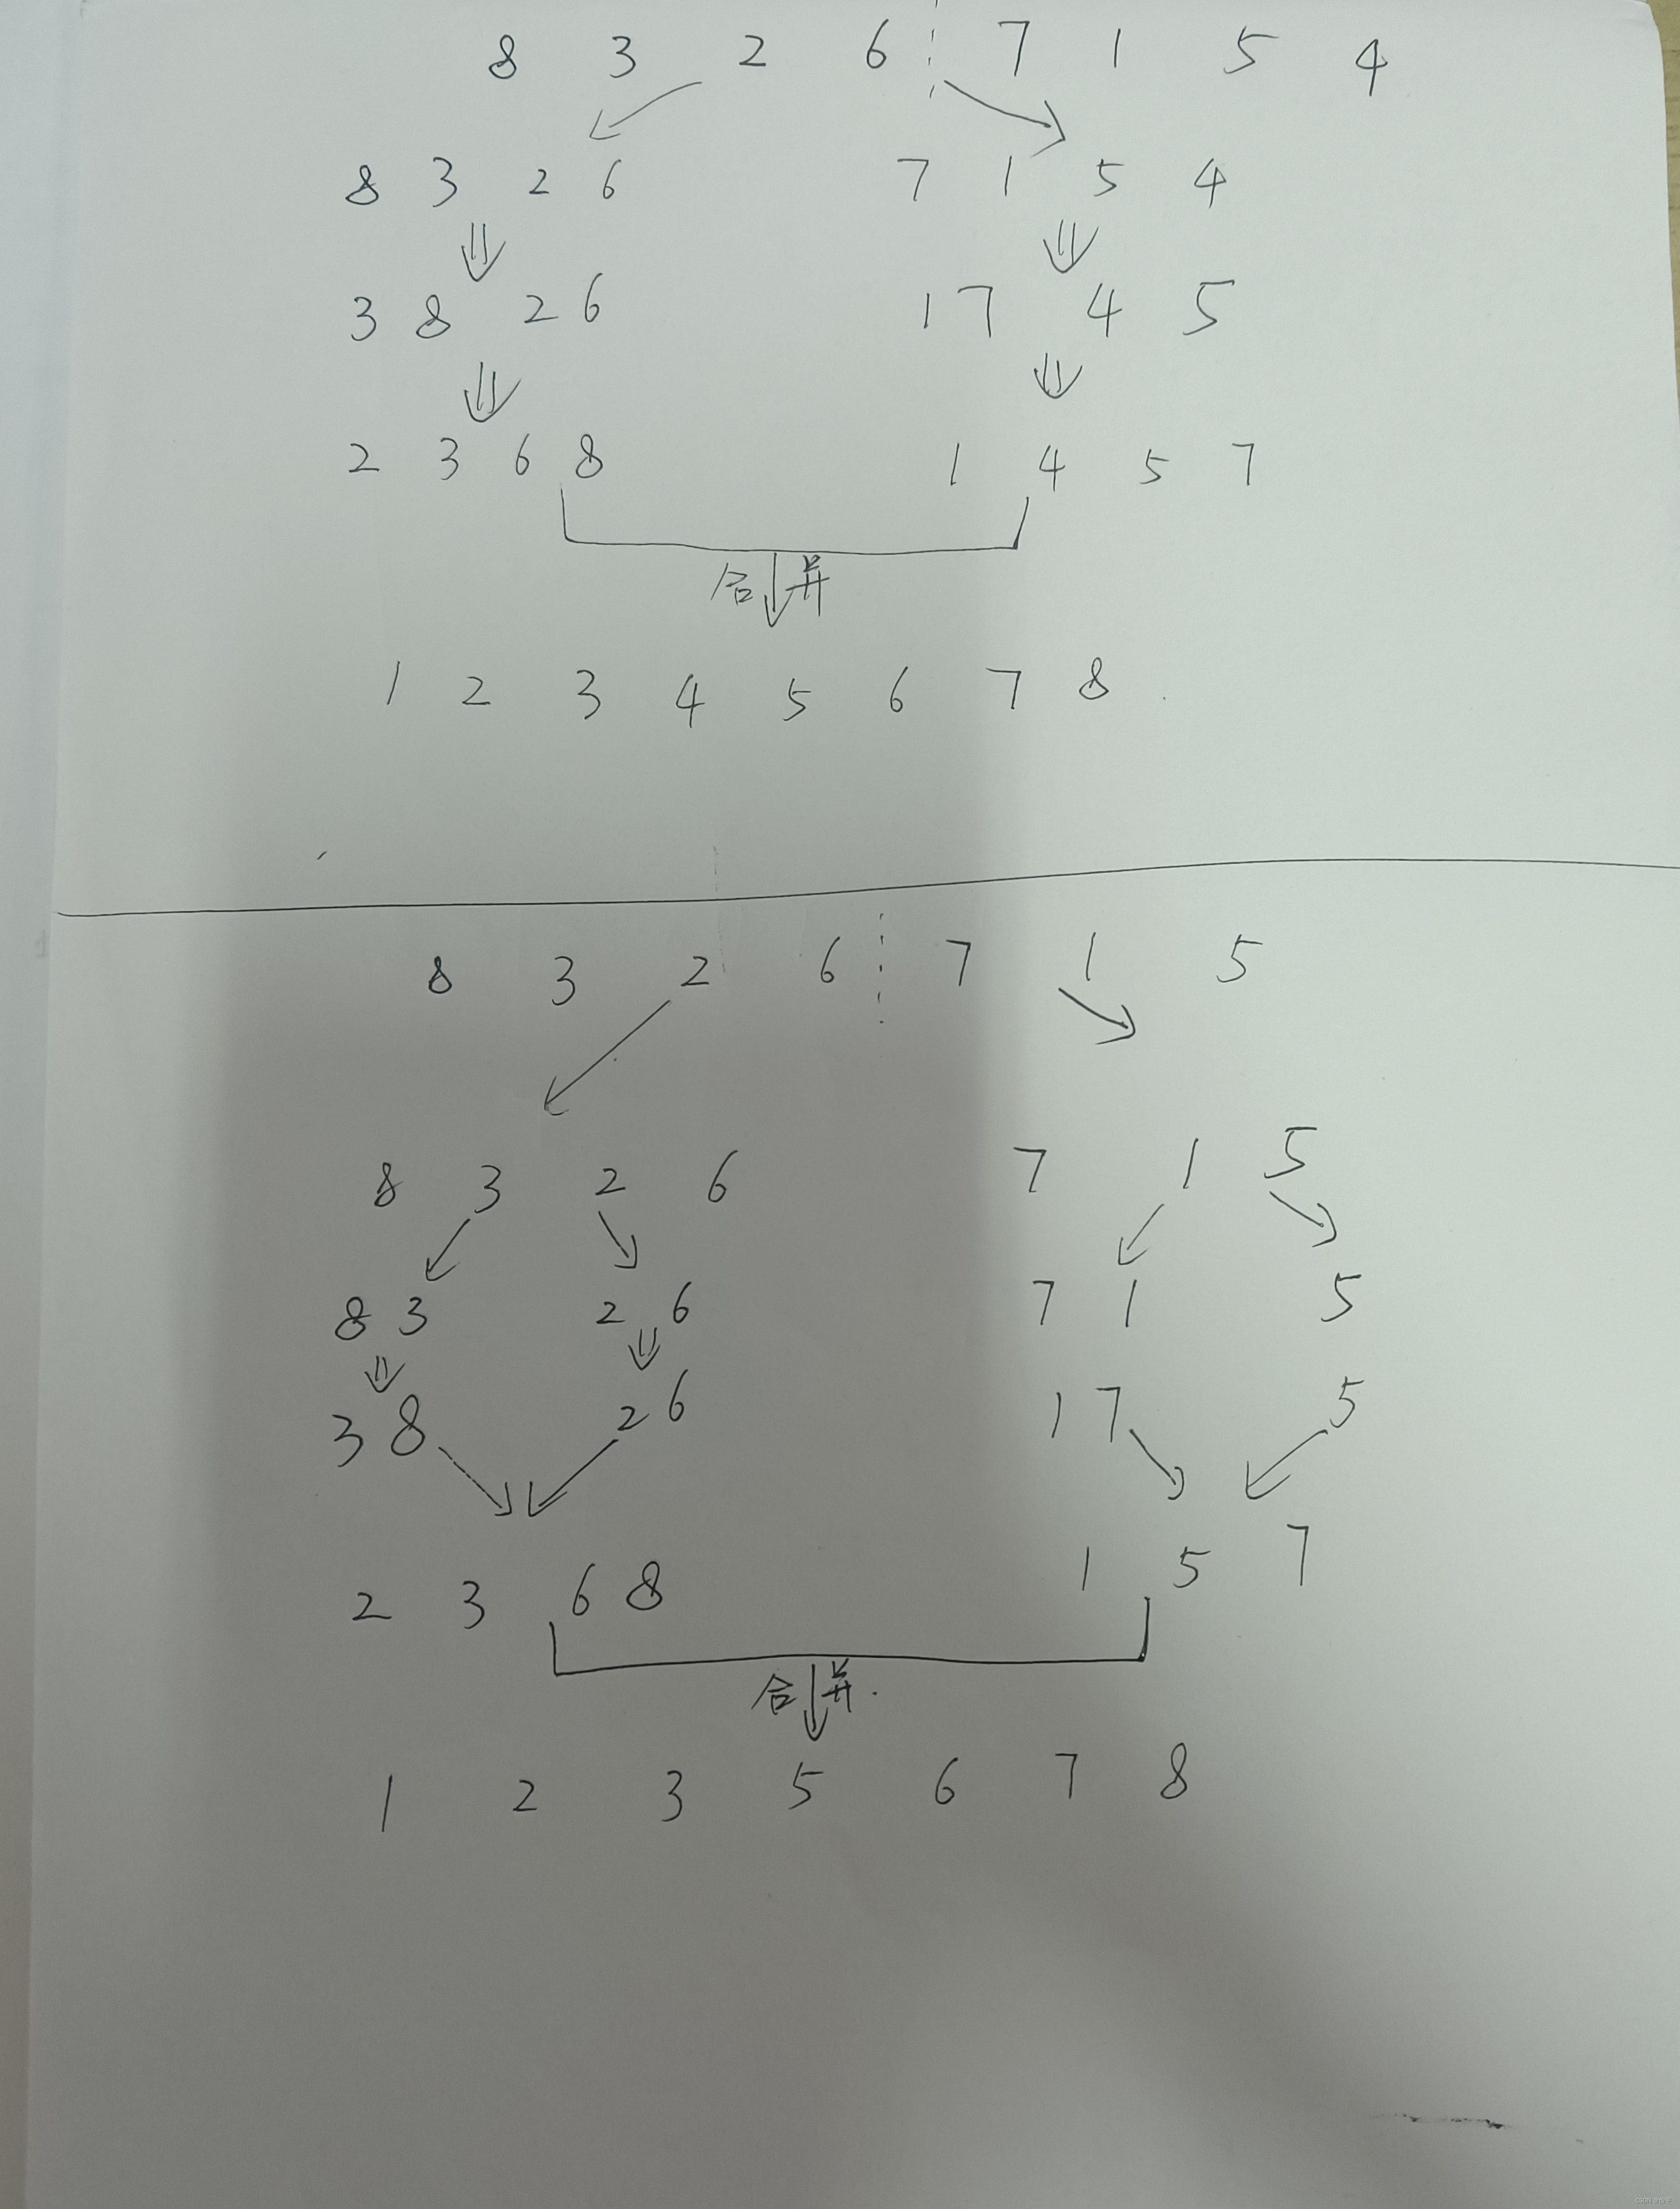 8 3 2 6 7 1 5 4
8 3 2 6 7 1 5 4
3 8 2 6 1 7 4 5
2 3 6 8 1 4 5 7
合并
1 2 3 4 5 6 7 8
8 3 2 6 7 1 5
8 3 2 6 7 1 5
8 3 2 6 7 1 5
3 8 2 6 1 7 5
2 3 6 8 1 5 7
合并
1 2 3 5 6 7 8